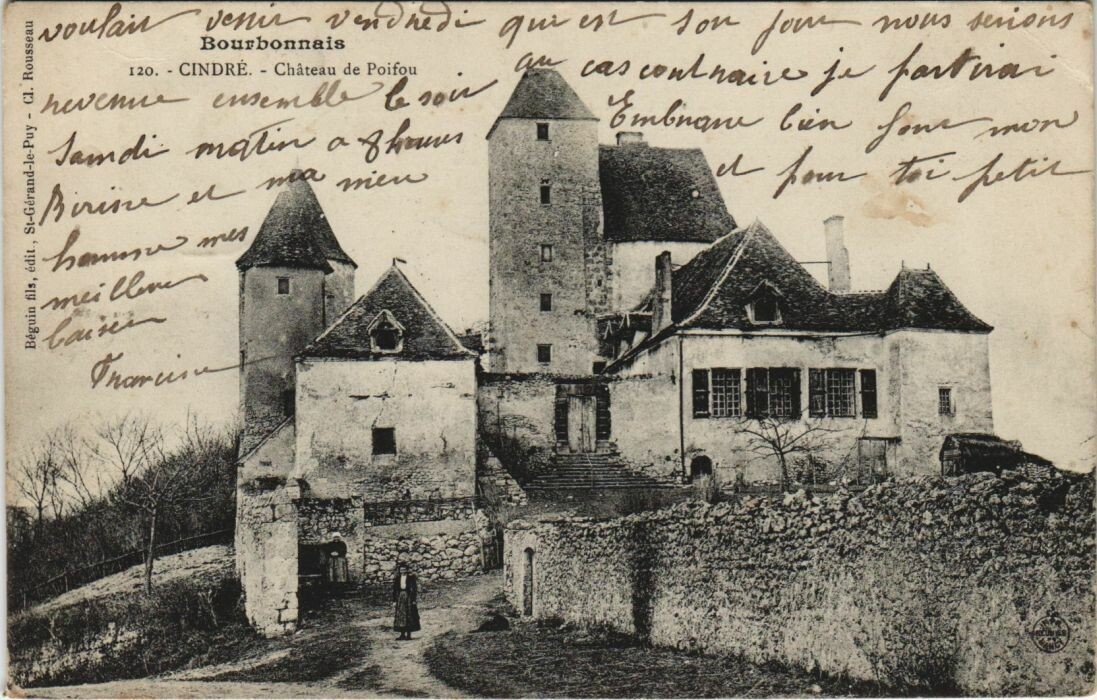 voulait venir vendredi que est son jour nous serions
revenue ensemble le soir au cas contraire je partirai
Samdi matin a 8 heures Embrasse bien fort mon
et ma et pour toi petit
homme mes
meilleur
baiser
Francine
Bourbonnais
120. - CINDRÉ. - Château de Poifou
Béguin fils, édit., St-Gérand-le-Puy - Cl. Rousseau